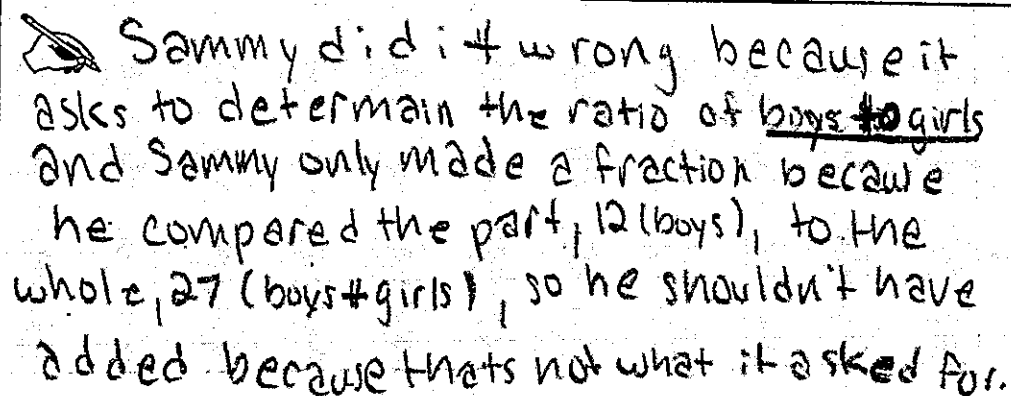 Sammy did it wrong because it
asks to determain the ratio of boys to girls
and Sammy only made a fraction because
he compared the part, 12 (boys), to the
whole, 27 (boys + girls), so he shouldn't have
added because thats not what it asked for.